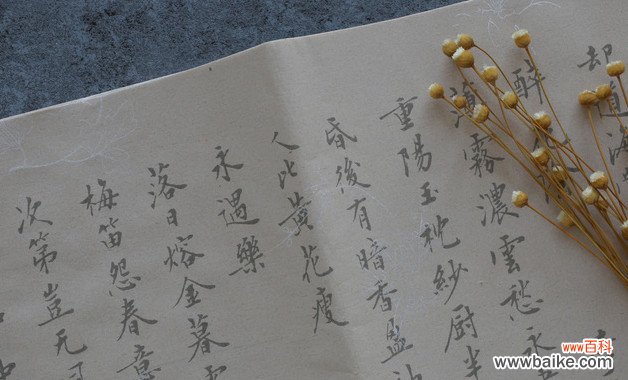 却道海
醉花
薄霧濃雲愁永
重陽玉枕紗厨半
昏後有暗香盈
人比黄花瘦
永遇樂
落日熔金暮雲
梅笛怨春意
次第豈无
www百科
www.baike.com